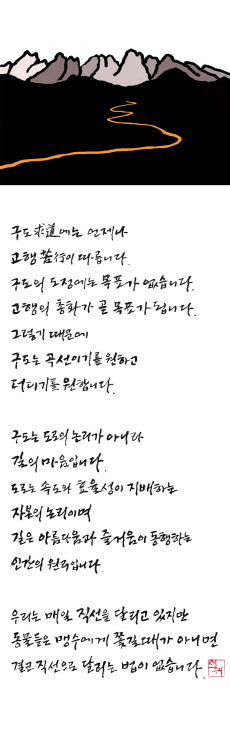 구도求道에는 언제나
고행苦行이 따릅니다.
구도의 도정에는 목표가 없습니다.
고행의 총화가 곧 목표가 됩니다.
그렇기 때문에
구도는 곡선이기를 원하고
더디기를 원합니다.
구도는 도로의 논리가 아니라
길의 마음입니다.
도로는 속도와 효율성이 지배하는
자본의 논리이며
길은 아름다움과 즐거움이 동행하는
인간의 원리입니다.
우리는 매일 직선을 달리고 있지만
동물들은 맹수에게 쫓길 때가 아니면
결코 직선으로 달리는 법이 없습니다.